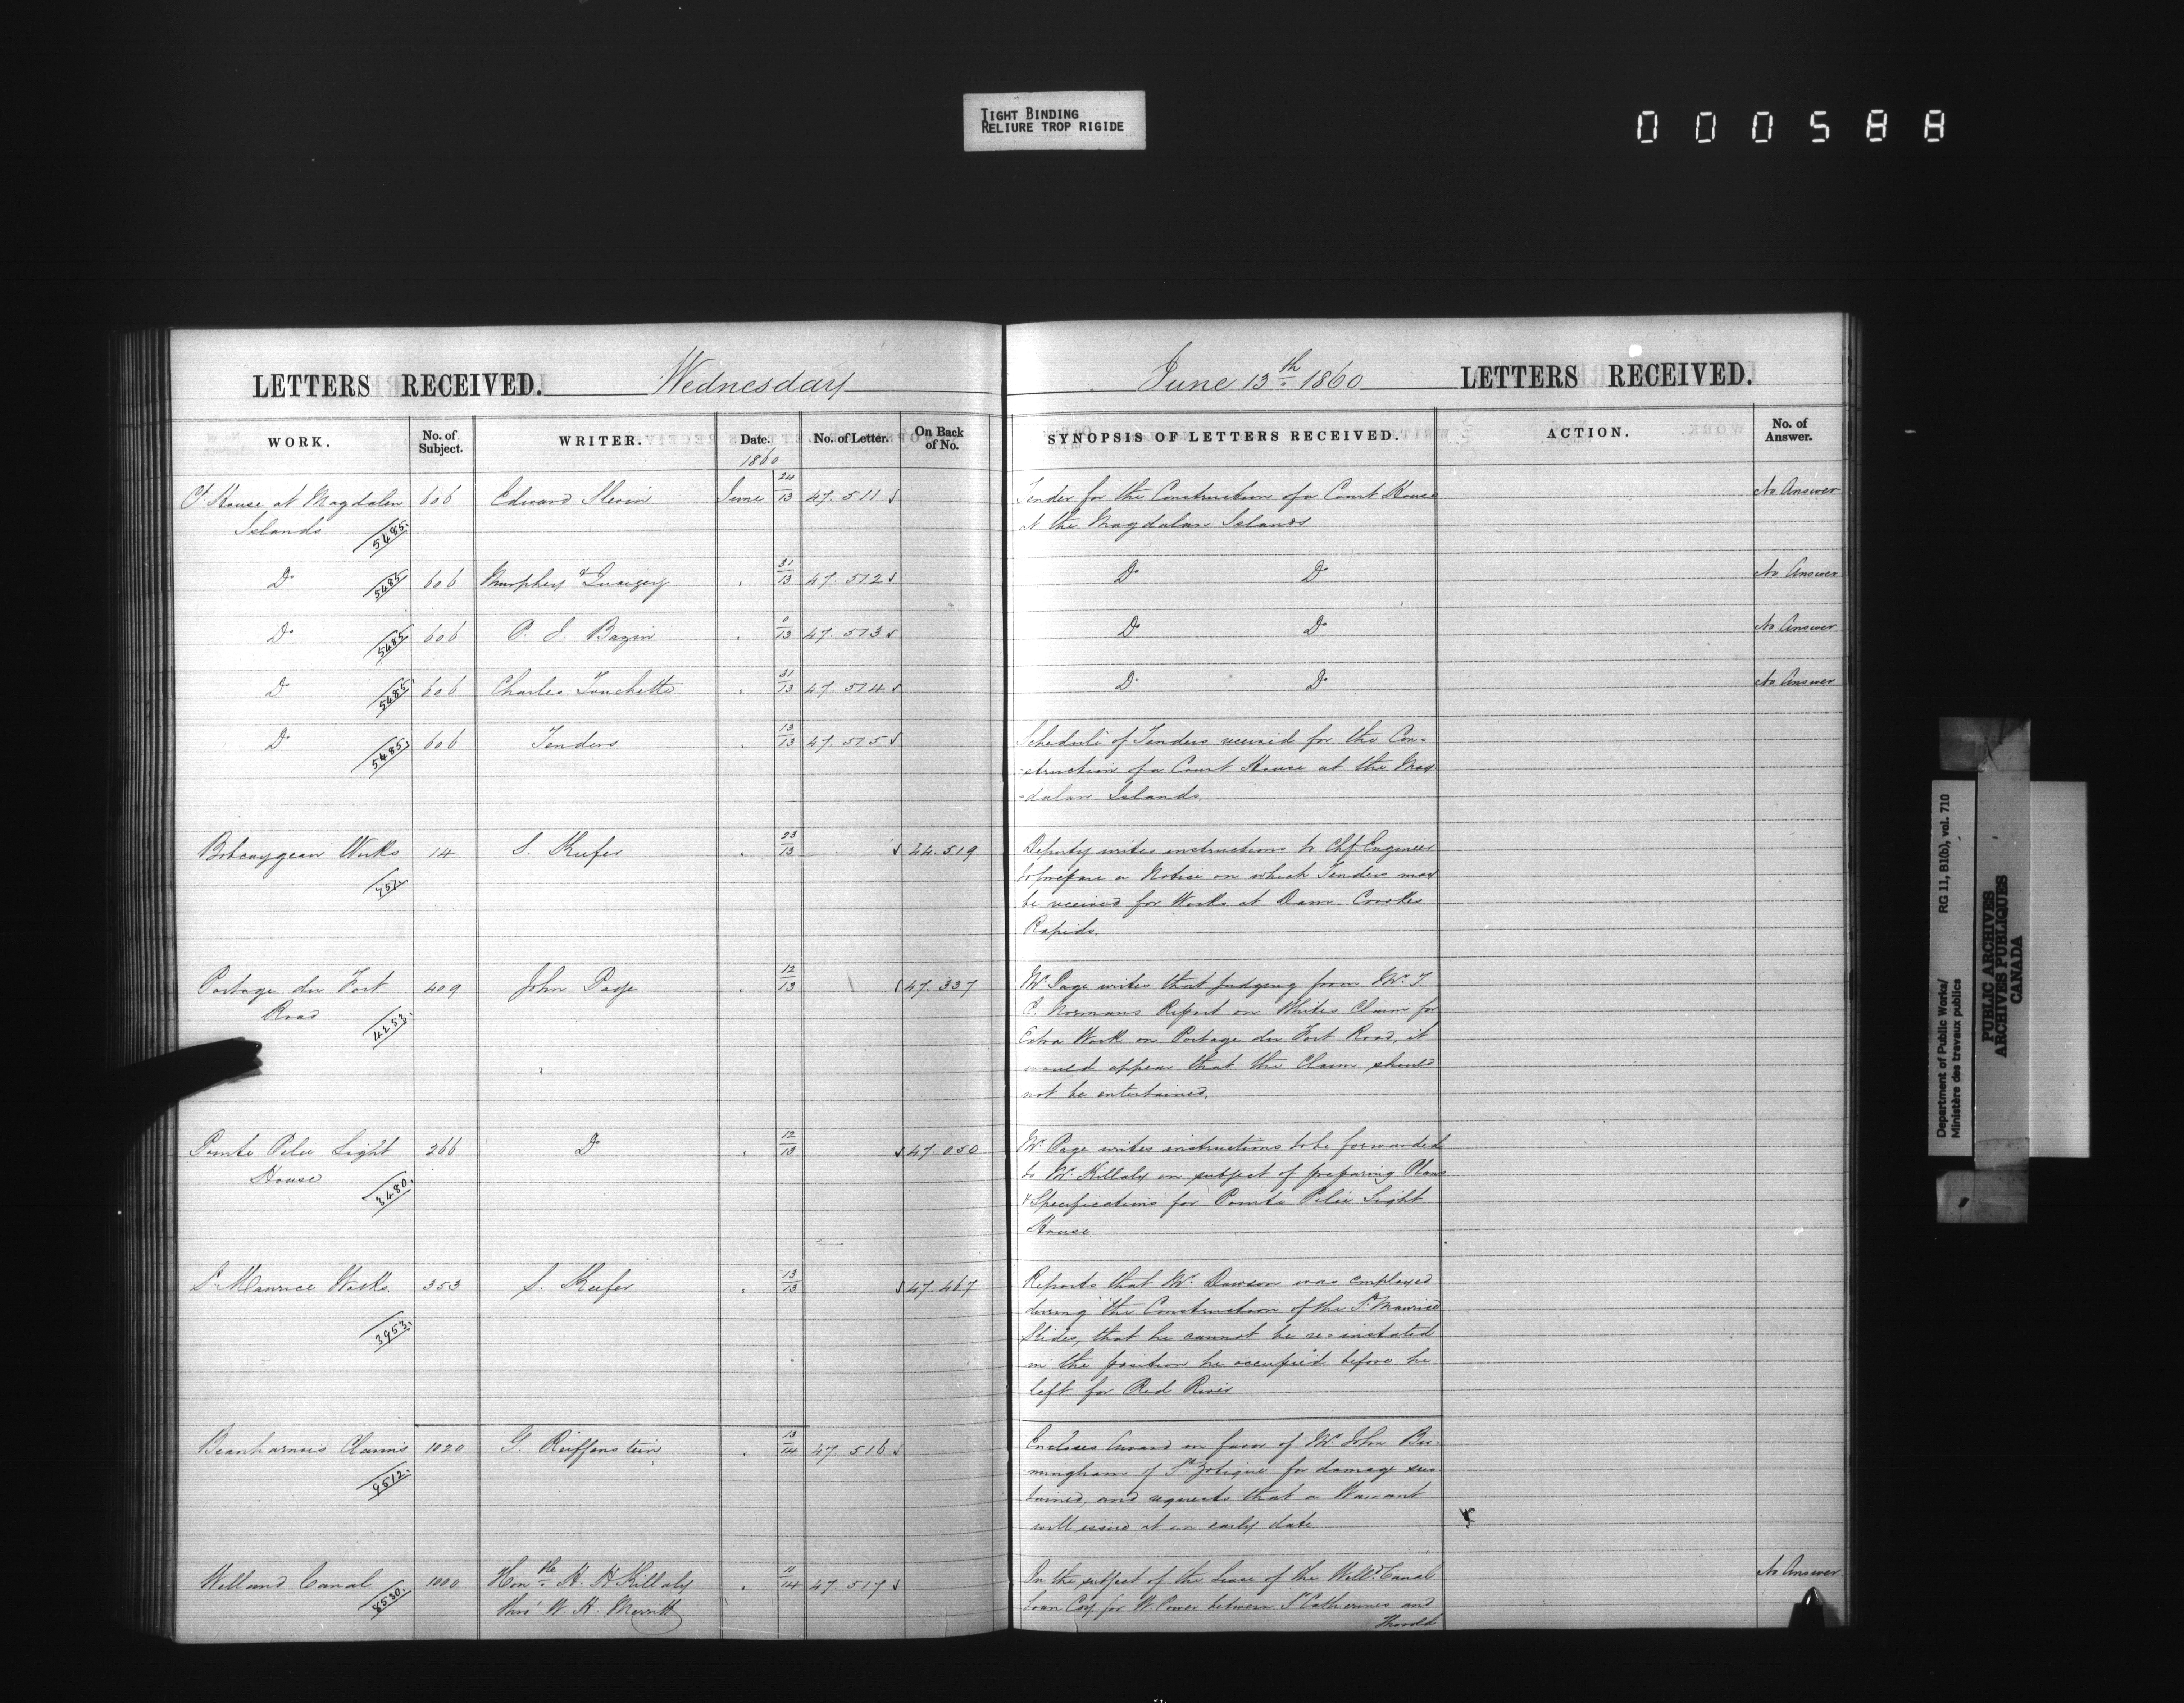 TIGHT BINDING
RELIURE TROP RIGIDE
000588
LETTERS RECEIVED. Wednesday
WORK. No. of Subject. WRITER. Date. No. of Letter. On Back of No.
1860
Ct. House at Magdalen 606 Edward Slevin June 24/13 47.511
Islands 5485
Do 5485 606 Murphy & 31/13 47.512
Do 5485 606 P. S. Bazin 0/13 47.513
Do 5485 606 Charles Touchette 31/13 47.514
Do 5485 606 Tenders 13/13 47.515
Bobcaygean Works 14 S. Keefer 23/13 44.519
757
Portage du Fort 409 John Page 12/13 47.337
Road 4253
Pointe Pelee Light 266 Do 12/13 47.050
House 3480
St. Maurice Works 353 S. Keefer 13/13 47.467
3953
Beauharnois Claims 1020 G. Reiffenstein 13/14 47.516
9512
Welland Canal 1000 Honble H. H. Killaly 11/14 47.517
8530 thro' W. H. Merritt
June 13th 1860 LETTERS RECEIVED.
SYNOPSIS OF LETTERS RECEIVED. ACTION. No. of Answer.
Tender for the Construction of a Court House No Answer
at the Magdalan Islands
Do Do No Answer
Do Do No Answer
Do Do No Answer
Schedule of Tenders received for the Con-
-struction of a Court House at the Mag
-dalan Islands
Deputy writes instructions to Chf Engineer
to prepare a Notice on which Tenders may
be received for Works at Dam Crookes
Rapids.
Mr. Page writes that judging from Mr. T.
C. Normans Report on Whites Claim for
Extra Work on Portage du Fort Road, it
would appear that the Claim should
not be entertained.
Mr. Page writes instructions to be forwarded
to Mr. Killaly on subject of preparing Plans
& Specifications for Pointe Pelee Light
House
Reports that Mr. Dawson was employed
during the Construction of the St. Maurice
Slides, that he cannot be re-instated
in the position he occupied before he
left for Red River
Encloses Award in favor of Mr. John Bir-
-mingham of St Zotique for damage sus
tained, and requests that a Warrant
will issue at an early date
On the subject of the Lease of the Welld. Canal No Answer
Loan Coy. for W. Power between St Catherines and
Thorold
Department of Public Works/ RG 11, B1(b), vol. 710
Ministère des travaux publics
PUBLIC ARCHIVES
ARCHIVES PUBLIQUES
CANADA